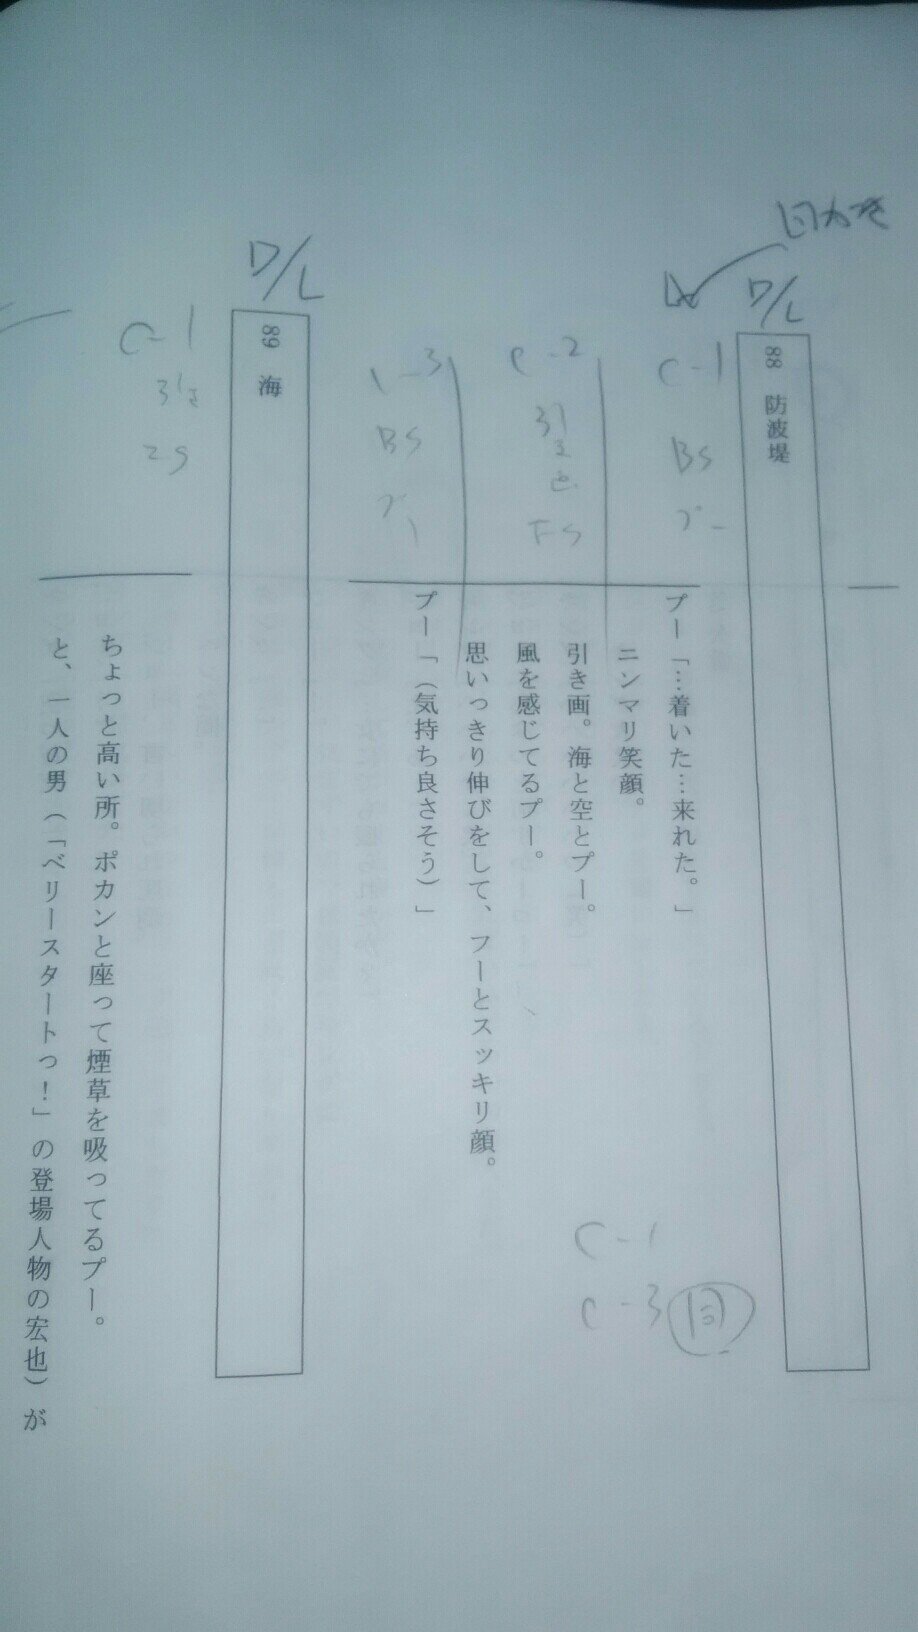 D/L
88 防波堤
C-1
BS
プー
プー「…着いた…来れた。」
ニンマリ笑顔。
C-2
引き画
FS
引き画。海と空とプー。
風を感じてるプー。
思いっきり伸びをして、フーとスッキリ顔。
C-3
BS
プー
プー「（気持ち良さそう）」
C-1
C-3 同
D/L
89 海
C-1
引き
2S
ちょっと高い所。ポカンと座って煙草を吸ってるプー。
と、一人の男（「ベリースタートっ！」の登場人物の宏也）が